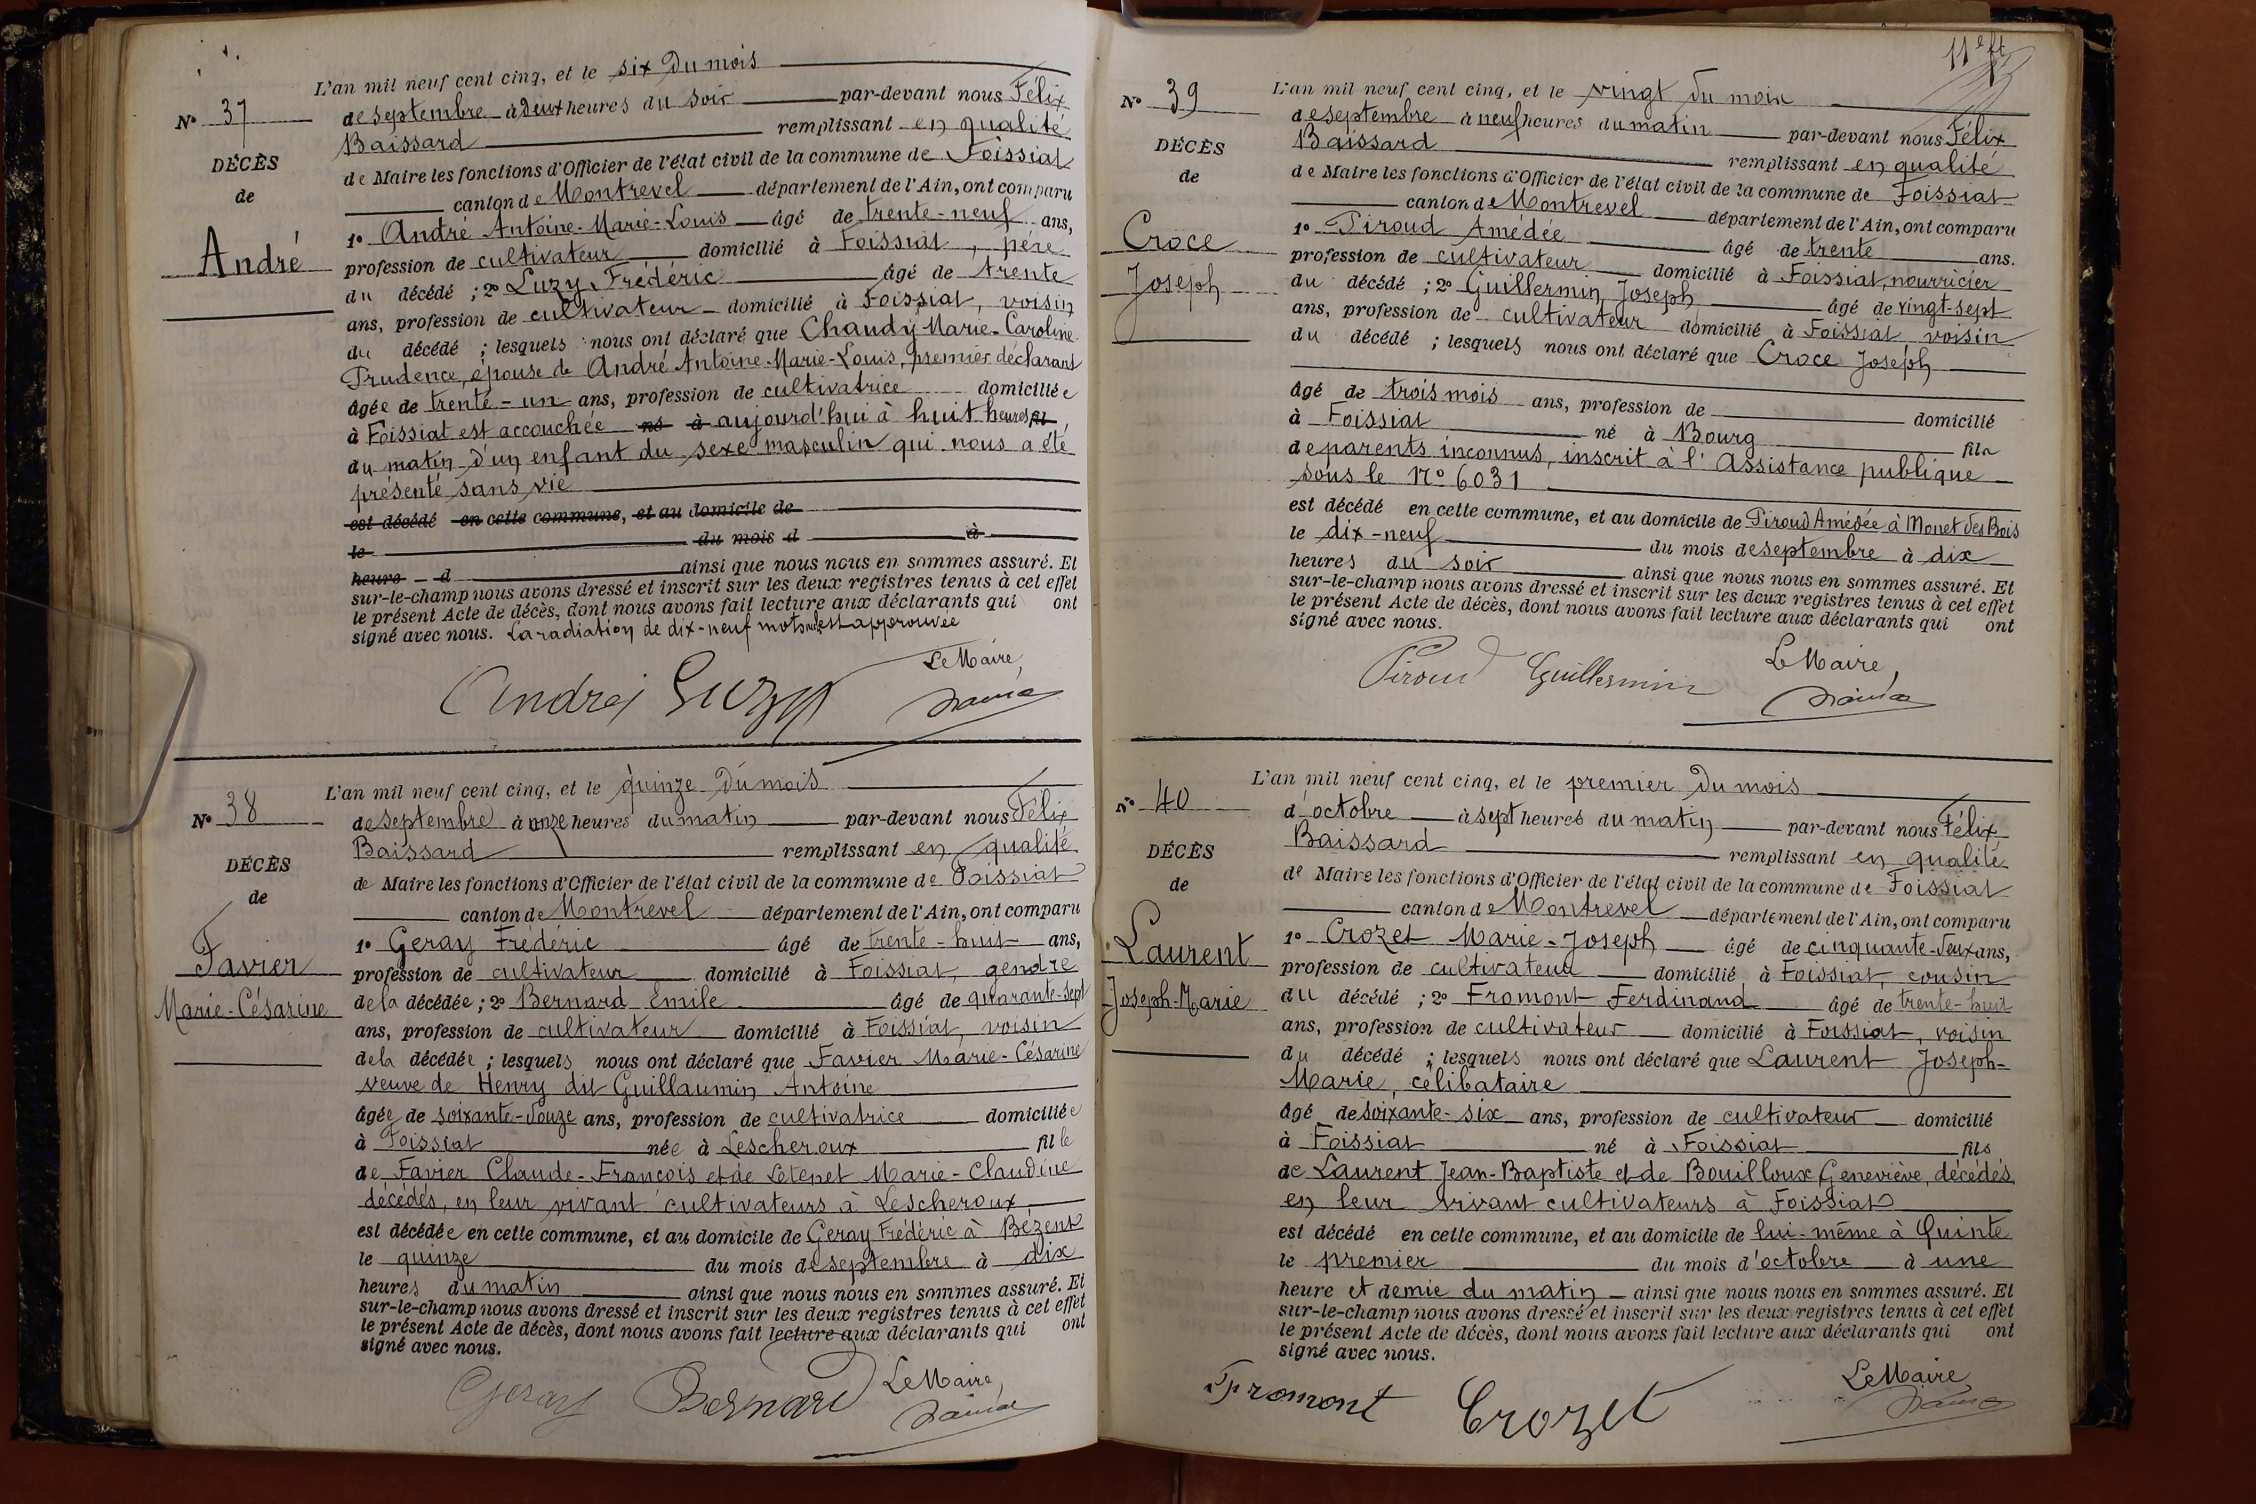 L'an mil neuf cent cinq, et le six du mois
N° 37
de septembre à deux heures du soir par-devant nous Félix
Baissard remplissant en qualité
DÉCÈS
de Maire les fonctions d'Officier de l'état civil de la commune de Foissiat
de
canton de Montrevel département de l'Ain, ont comparu
1° André Antoine-Marie-Louis âgé de trente-neuf ans,
André
profession de cultivateur domicilié à Foissiat, père
du décédé ; 2° Luzy Frédéric âgé de trente
ans, profession de cultivateur domicilié à Foissiat, voisin
du décédé ; lesquels nous ont déclaré que Chaudy Marie-Caroline
Prudence, épouse de André Antoine-Marie-Louis, premier déclarant
âgée de trente-un ans, profession de cultivatrice domiciliée
à Foissiat est accouchée né à aujourd'hui à huit heures
du matin d'un enfant du sexe masculin qui nous a été
présenté sans vie
est décédé en cette commune, et au domicile de
le du mois d à
heure d ainsi que nous nous en sommes assuré. Et
sur-le-champ nous avons dressé et inscrit sur les deux registres tenus à cet effet
le présent Acte de décès, dont nous avons fait lecture aux déclarants qui ont
signé avec nous. La radiation de dix-neuf mots est approuvée
Le Maire,
André Luzy
L'an mil neuf cent cinq, et le quinze du mois
N° 38
de septembre à onze heures du matin par-devant nous Félix
Baissard remplissant en qualité
DÉCÈS
de Maire les fonctions d'Officier de l'état civil de la commune de Foissiat
de
canton de Montrevel département de l'Ain, ont comparu
1° Geray Frédéric âgé de trente-huit ans,
Favier
profession de cultivateur domicilié à Foissiat, gendre
Marie-Césarine
de la décédée ; 2° Bernard Emile âgé de quarante-sept
ans, profession de cultivateur domicilié à Foissiat, voisin
de la décédée ; lesquels nous ont déclaré que Favier Marie-Césarine
veuve de Henry dit Guillaumin Antoine
âgée de soixante-douze ans, profession de cultivatrice domiciliée
à Foissiat née à Lescheroux fille
de Favier Claude-François et de Letepet Marie-Claudine
décédés, en leur vivant cultivateurs à Lescheroux
est décédée en cette commune, et au domicile de Geray Frédéric à Bézent
le quinze du mois de septembre à dix
heures du matin ainsi que nous nous en sommes assuré. Et
sur-le-champ nous avons dressé et inscrit sur les deux registres tenus à cet effet
le présent Acte de décès, dont nous avons fait lecture aux déclarants qui ont
signé avec nous.
Le Maire,
Geray Bernard
L'an mil neuf cent cinq, et le vingt du mois
N° 39
de septembre à neuf heures du matin par-devant nous Félix
Baissard remplissant en qualité
DÉCÈS
de Maire les fonctions d'Officier de l'état civil de la commune de Foissiat
de
canton de Montrevel département de l'Ain, ont comparu
1° Piroud Amédée âgé de trente ans.
Croce
profession de cultivateur domicilié à Foissiat, nourricier
Joseph
du décédé ; 2° Guillermin Joseph âgé de vingt-sept
ans, profession de cultivateur domicilié à Foissiat voisin
du décédé ; lesquels nous ont déclaré que Croce Joseph
âgé de trois mois ans, profession de domicilié
à Foissiat né à Bourg fils
de parents inconnus, inscrit à l'Assistance publique
sous le N° 6031
est décédé en cette commune, et au domicile de Piroud Amédée à Monet des Bois
le dix-neuf du mois de septembre à dix
heures du soir ainsi que nous nous en sommes assuré. Et
sur-le-champ nous avons dressé et inscrit sur les deux registres tenus à cet effet
le présent Acte de décès, dont nous avons fait lecture aux déclarants qui ont
signé avec nous.
Le Maire,
Piroud Guillermin
L'an mil neuf cent cinq, et le premier du mois
N° 40
d'octobre à sept heures du matin par-devant nous Félix
Baissard remplissant en qualité
DÉCÈS
de Maire les fonctions d'Officier de l'état civil de la commune de Foissiat
de
canton de Montrevel département de l'Ain, ont comparu
1° Crozet Marie-Joseph âgé de cinquante-deux ans,
Laurent
profession de cultivateur domicilié à Foissiat, cousin
Joseph-Marie
du décédé ; 2° Fromont Ferdinand âgé de trente-huit
ans, profession de cultivateur domicilié à Foissiat, voisin
du décédé ; lesquels nous ont déclaré que Laurent Joseph-
Marie, célibataire
âgé de soixante-six ans, profession de cultivateur domicilié
à Foissiat né à Foissiat fils
de Laurent Jean-Baptiste et de Bouilloux Geneviève, décédés
en leur vivant cultivateurs à Foissiat
est décédé en cette commune, et au domicile de lui-même à Quinte
le premier du mois d'octobre à une
heure et demie du matin ainsi que nous nous en sommes assuré. Et
sur-le-champ nous avons dressé et inscrit sur les deux registres tenus à cet effet
le présent Acte de décès, dont nous avons fait lecture aux déclarants qui ont
signé avec nous.
Le Maire
Fromont Crozet